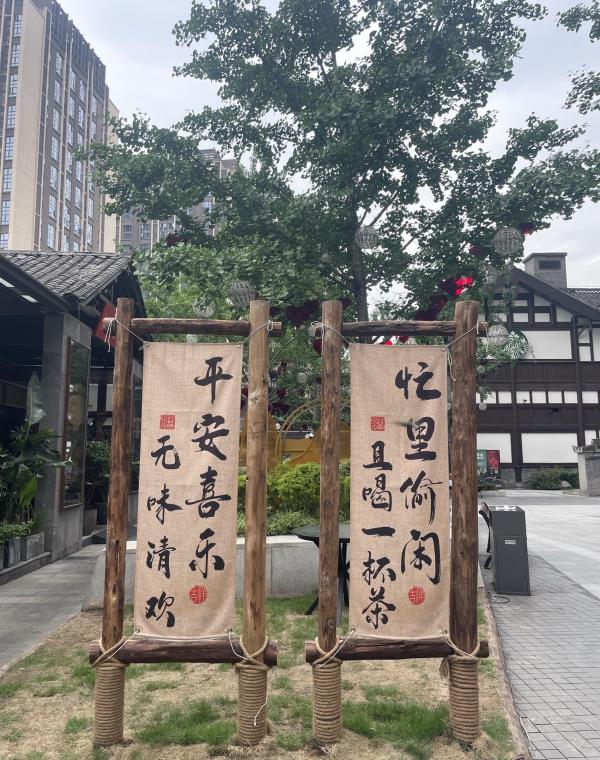 忙里偷闲
且喝一杯茶
平安喜乐
无味清欢